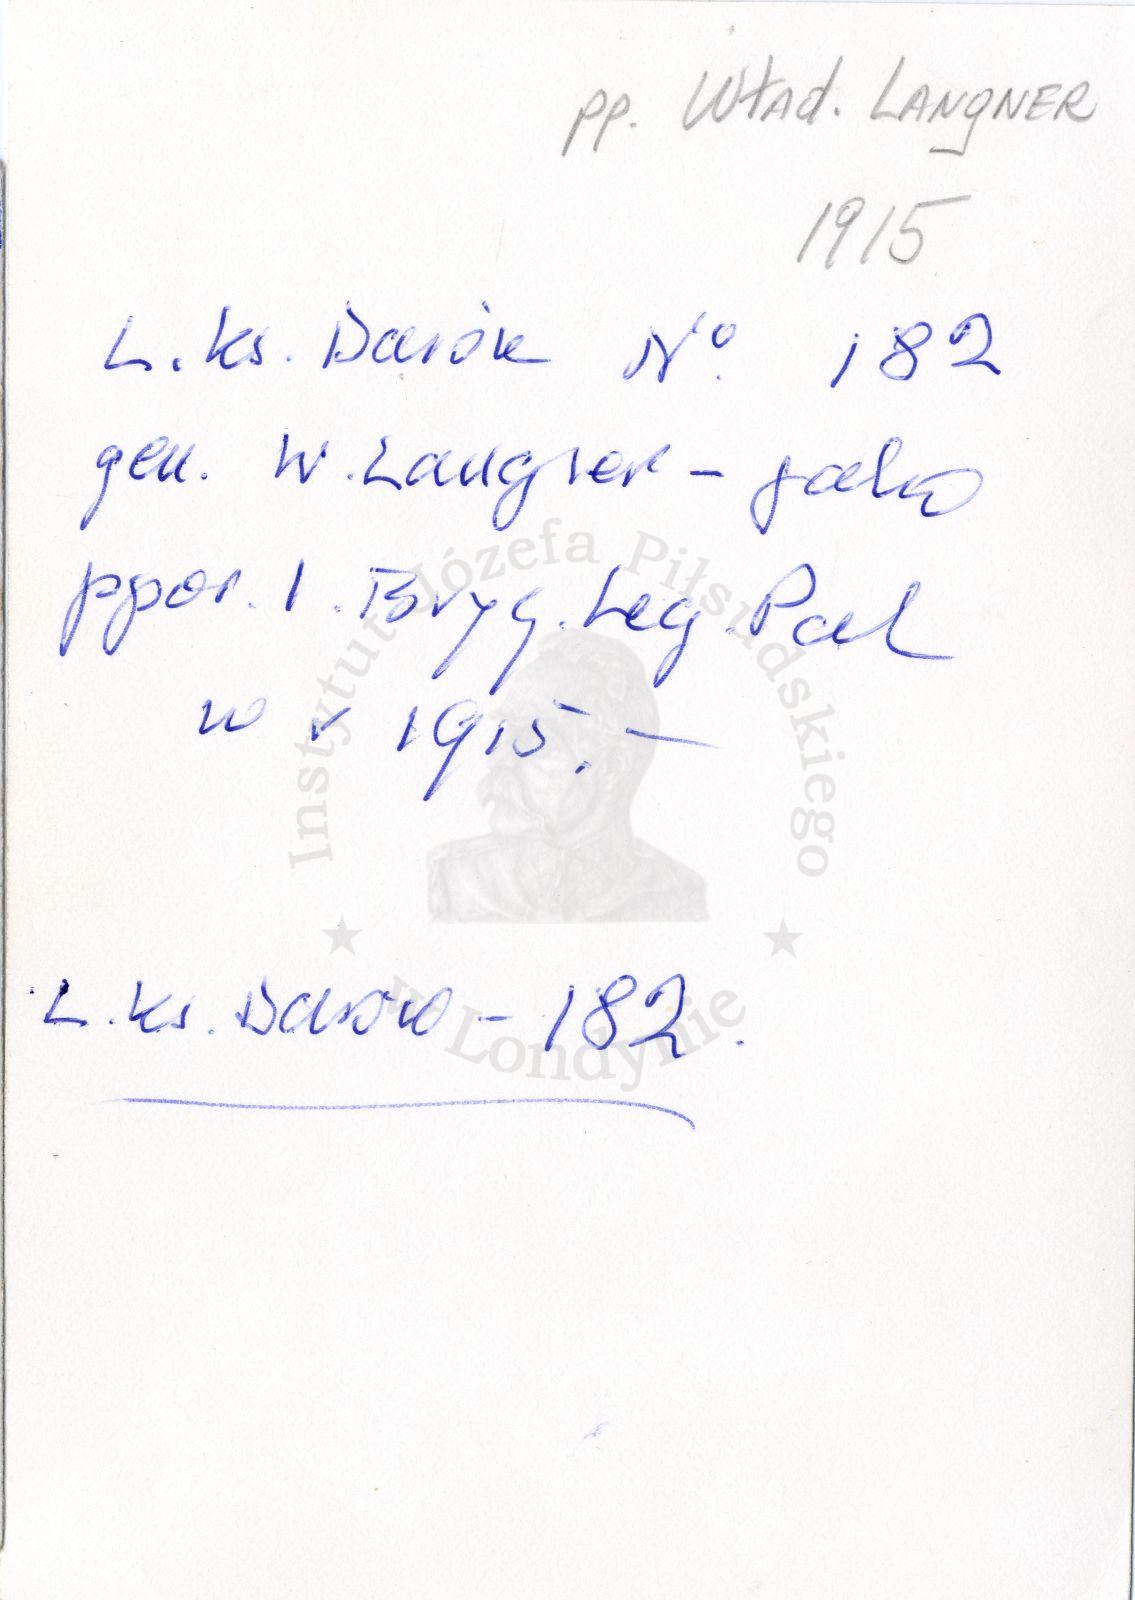 pp. Wład. LANGNER
1915
L. ks. Darów Nº. 182
gen. W. Langner - jako
ppor. I. Bryg. Leg. Pol
w r 1915. -
L. ks. Darów - 182.
Instytut Józefa Piłsudskiego
w Londynie